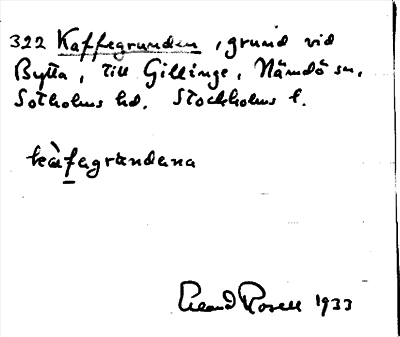 322 Kaffegrunden, grund vid
Bytta, till Gillinge, Nämdö sn,
Sotholms hd. Stockholms l.
kàfagrandana
Erland Rosell 1933